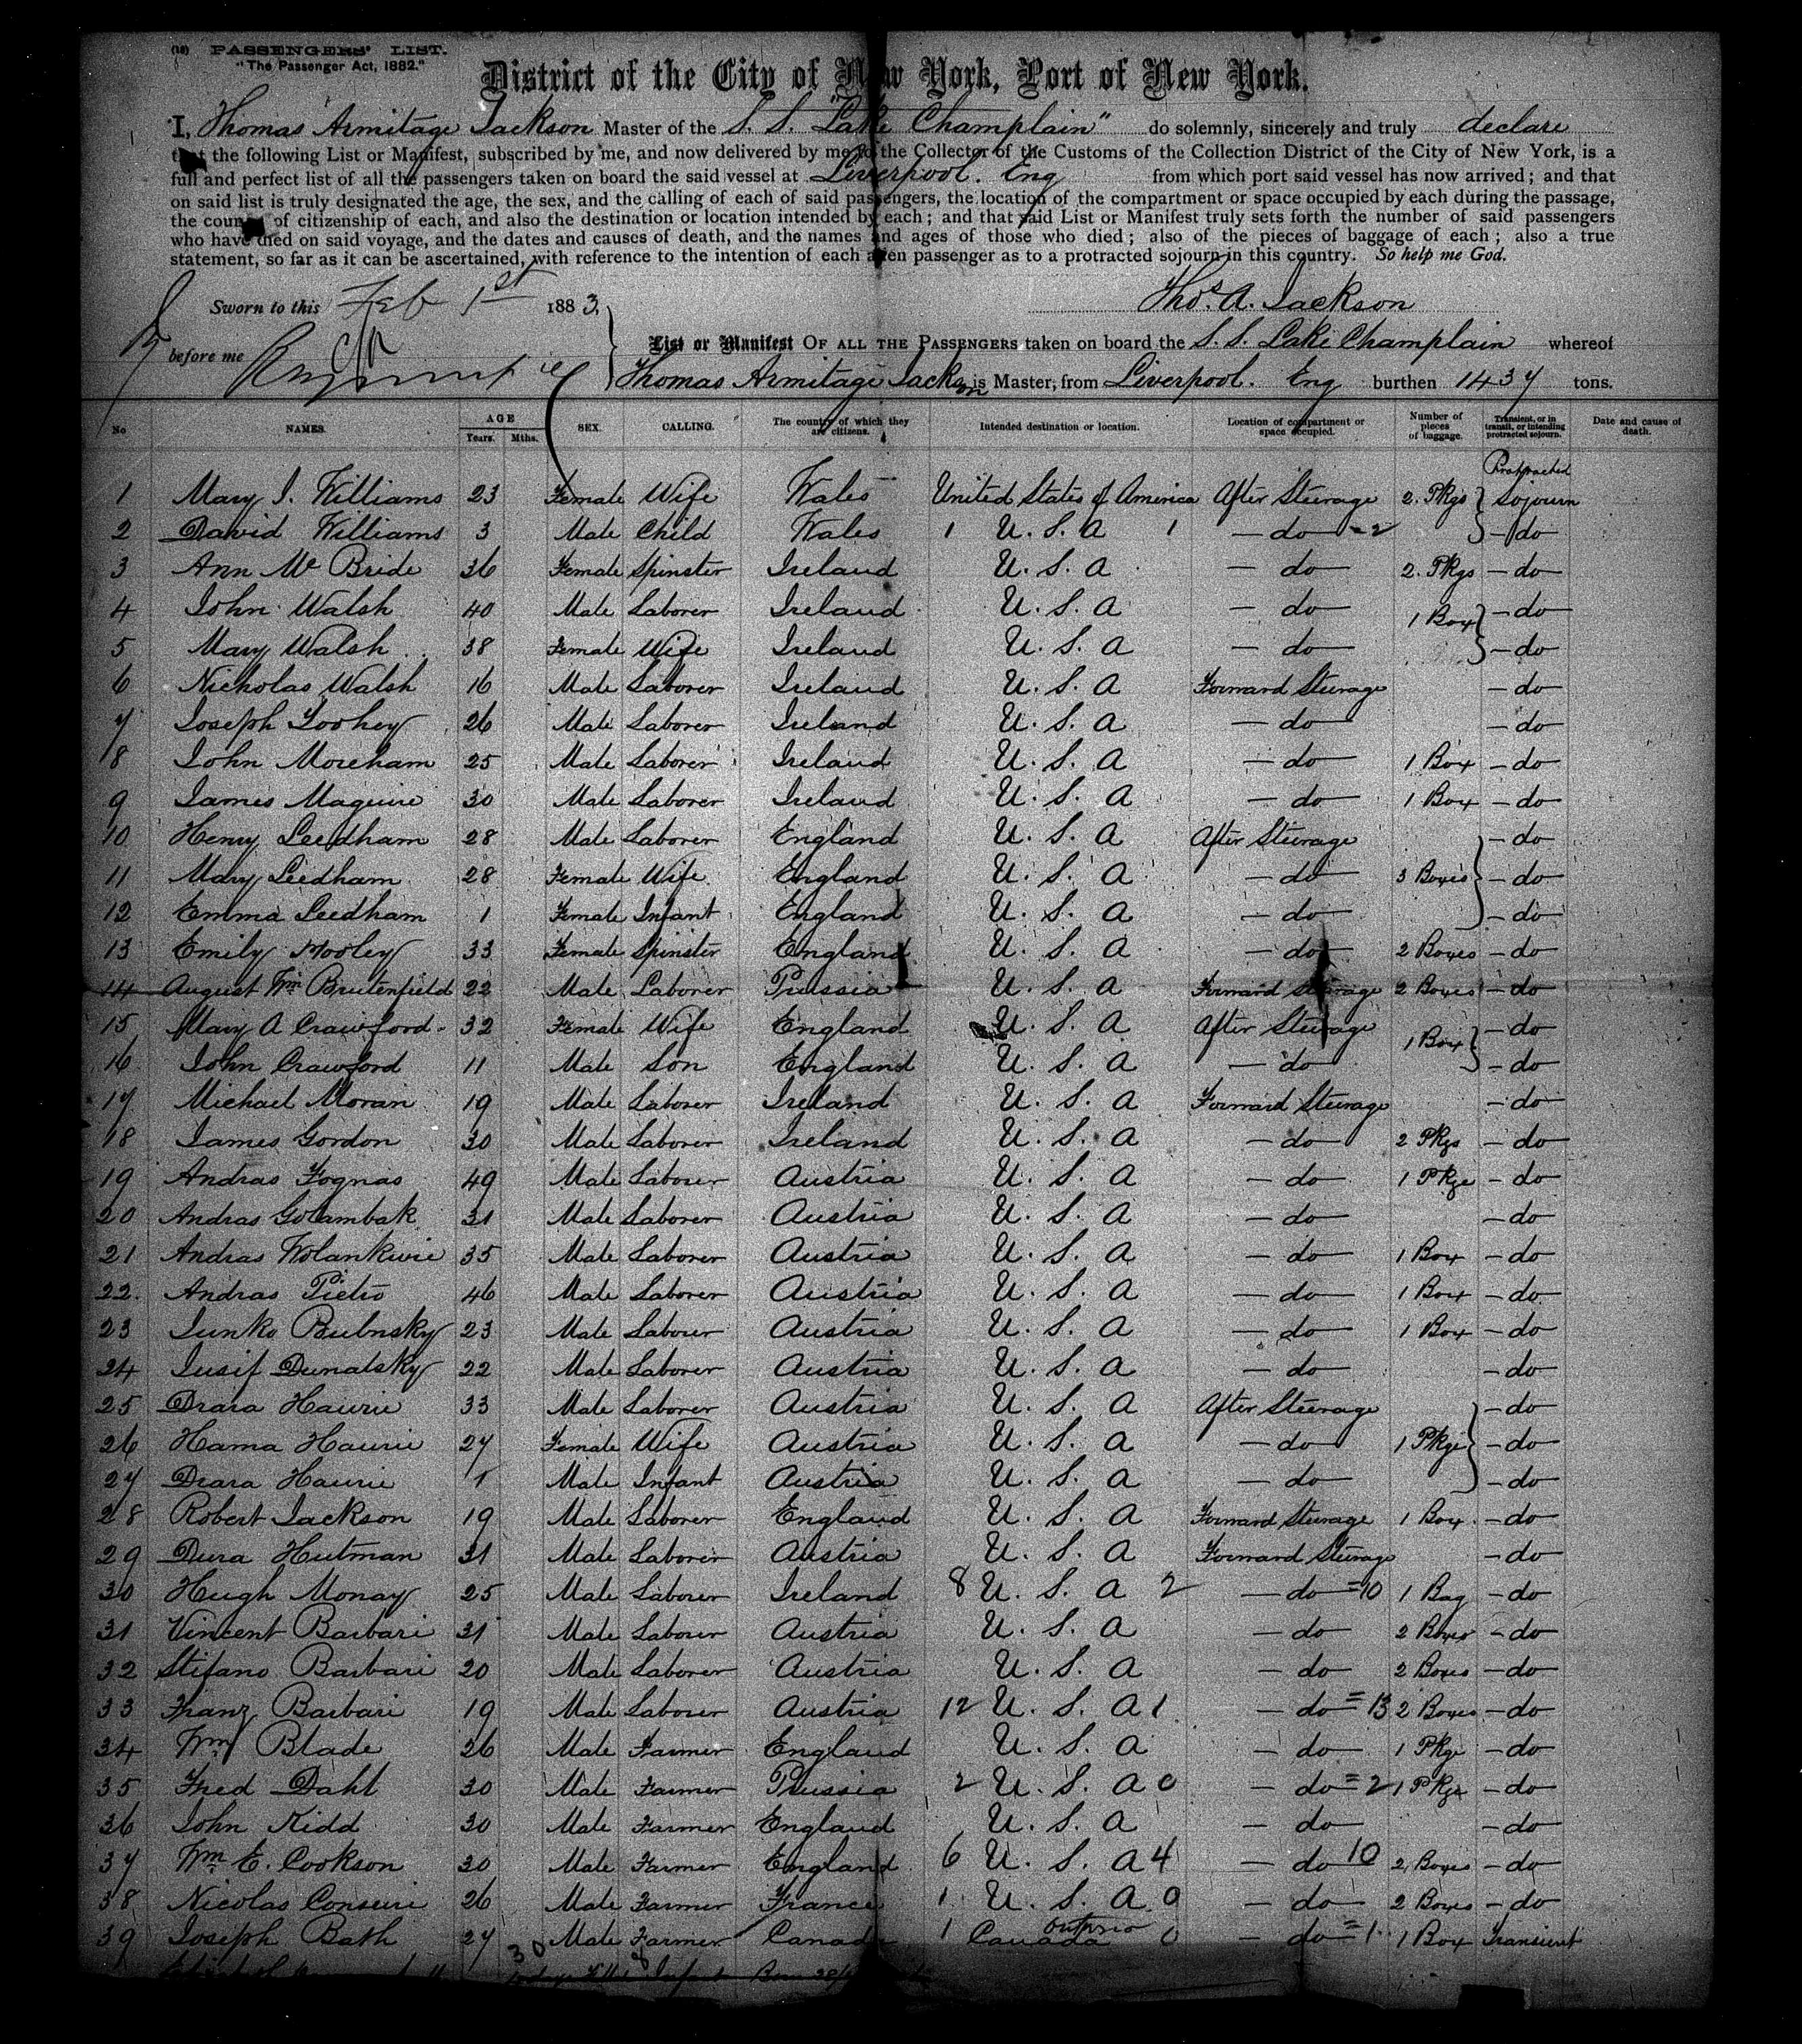 (18) PASSENGERS' LIST.
"The Passenger Act, 1882."
District of the City of New York, Port of New York.
I, Thomas Armitage Jackson Master of the S. S. "Lake Champlain" do solemnly, sincerely and truly declare
that the following List or Manifest, subscribed by me, and now delivered by me to the Collector of the Customs of the Collection District of the City of New York, is a
full and perfect list of all the passengers taken on board the said vessel at Liverpool. Eng from which port said vessel has now arrived; and that
on said list is truly designated the age, the sex, and the calling of each of said passengers, the location of the compartment or space occupied by each during the passage,
the country of citizenship of each, and also the destination or location intended by each; and that said List or Manifest truly sets forth the number of said passengers
who have died on said voyage, and the dates and causes of death, and the names and ages of those who died; also of the pieces of baggage of each; also a true
statement, so far as it can be ascertained, with reference to the intention of each alien passenger as to a protracted sojourn in this country. So help me God.
Sworn to this Feb 1st 1883, Thos. A. Jackson
before me
List or Manifest OF ALL THE PASSENGERS taken on board the S. S. Lake Champlain whereof
Thomas Armitage Jackson is Master, from Liverpool. Eng burthen 1437 tons.
No NAMES. AGE Years. Mths. SEX. CALLING. The country of which they are citizens. Intended destination or location. Location of compartment or space occupied. Number of pieces of baggage. Transient, or in transit, or intending protracted sojourn. Date and cause of death.
1 Mary J. Williams 23 Female Wife Wales United States of America After Steerage 2. Pkgs Protracted Sojourn
2 David Williams 3 Male Child Wales 1 U. S. A 1 - do - 2 - do
3 Ann Mc Bride 36 Female Spinster Ireland U. S. A - do - 2. Pkgs - do
4 John Walsh 40 Male Laborer Ireland U. S. A - do - 1 Box - do
5 Mary Walsh 38 Female Wife Ireland U. S. A - do - - do
6 Nicholas Walsh 16 Male Laborer Ireland U. S. A Forward Steerage - do
7 Joseph Toohey 26 Male Laborer Ireland U. S. A - do - - do
8 John Moreham 25 Male Laborer Ireland U. S. A - do - 1 Box - do
9 James Maguire 30 Male Laborer Ireland U. S. A - do - 1 Box - do
10 Henry Leedham 28 Male Laborer England U. S. A After Steerage - do
11 Mary Leedham 28 Female Wife England U. S. A - do - 3 Boxes - do
12 Emma Leedham 1 Female Infant England U. S. A - do - - do
13 Emily Mooley 33 Female Spinster England U. S. A - do - 2 Boxes - do
14 August Wm Brutenfield 22 Male Laborer Prussia U. S. A Forward Steerage 2 Boxes - do
15 Mary A Crawford 32 Female Wife England U. S. A After Steerage 1 Box - do
16 John Crawford 11 Male Son England U. S. A - do - - do
17 Michael Moran 19 Male Laborer Ireland U. S. A Forward Steerage - do
18 James Gordon 30 Male Laborer Ireland U. S. A - do - 2 Pkgs - do
19 Andras Fognas 49 Male Laborer Austria U. S. A - do - 1 Pkge - do
20 Andras Golambak 31 Male Laborer Austria U. S. A - do - - do
21 Andras Wolankivie 35 Male Laborer Austria U. S. A - do - 1 Box - do
22. Andras Pietro 46 Male Laborer Austria U. S. A - do - 1 Box - do
23 Junko Bubnsky 23 Male Laborer Austria U. S. A - do - 1 Box - do
24 Jusif Dunatsky 22 Male Laborer Austria U. S. A - do - - do
25 Drara Haurie 33 Male Laborer Austria U. S. A After Steerage - do
26 Hama Haurie 27 Female Wife Austria U. S. A - do - 1 Pkge - do
27 Drara Haurie 1 Male Infant Austria U. S. A - do - - do
28 Robert Jackson 19 Male Laborer England U. S. A Forward Steerage 1 Box - do
29 Dura Hutman 31 Male Laborer Austria U. S. A Forward Steerage - do
30 Hugh Monay 25 Male Laborer Ireland 8 U. S. A 2 - do = 10 1 Bag - do
31 Vincent Barbari 31 Male Laborer Austria U. S. A - do - 2 Boxes - do
32 Stefano Barbari 20 Male Laborer Austria U. S. A - do - 2 Boxes - do
33 Franz Barbari 19 Male Laborer Austria 12 U. S. A 1 - do = 13 2 Boxes - do
34 Wm Blade 26 Male Farmer England U. S. A - do - 1 Pkge - do
35 Fred Dahl 30 Male Farmer Prussia 2 U. S. A 0 - do = 2 1 Pkge - do
36 John Kidd 30 Male Farmer England U. S. A - do - - do
37 Wm E. Cookson 30 Male Farmer England 6 U. S. A 4 - do 10 2 Boxes - do
38 Nicolas Conseiri 26 Male Farmer France 1 U. S. A 0 - do - 2 Boxes - do
39 Joseph Bath 27 Male Farmer Canada 1 Canada Ontario 0 - do = 1 1 Box Transient
30